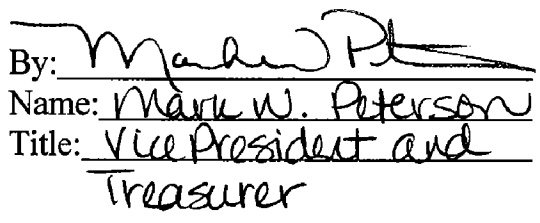 By: Mark W Pet
Name: Mark W. Peterson
Title: Vice President and
Treasurer